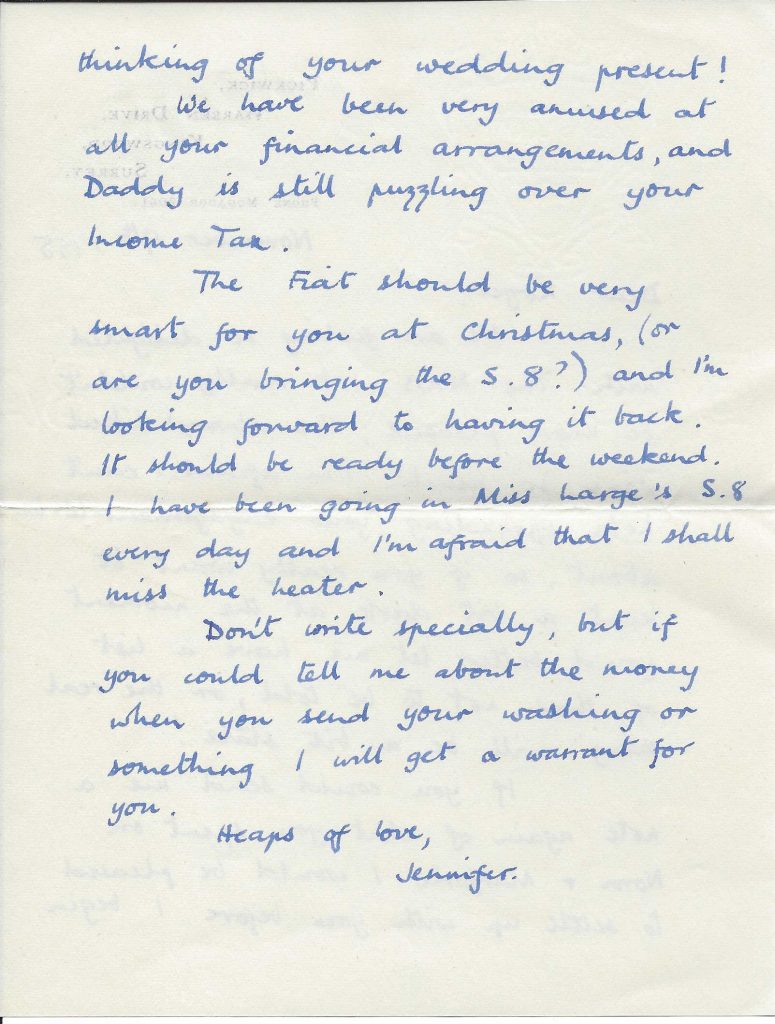 thinking of your wedding present!
We have been very amused at
all your financial arrangements, and
Daddy is still puzzling over your
Income Tax.
The Fiat should be very
smart for you at Christmas, (or
are you bringing the S.8?) and I'm
looking forward to having it back.
It should be ready before the weekend.
I have been going in Miss Large's S.8
every day and I'm afraid that I shall
miss the heater.
Don't write specially, but if
you could tell me about the money
when you send your washing or
something I will get a warrant for
you.
Heaps of love,
Jennifer.